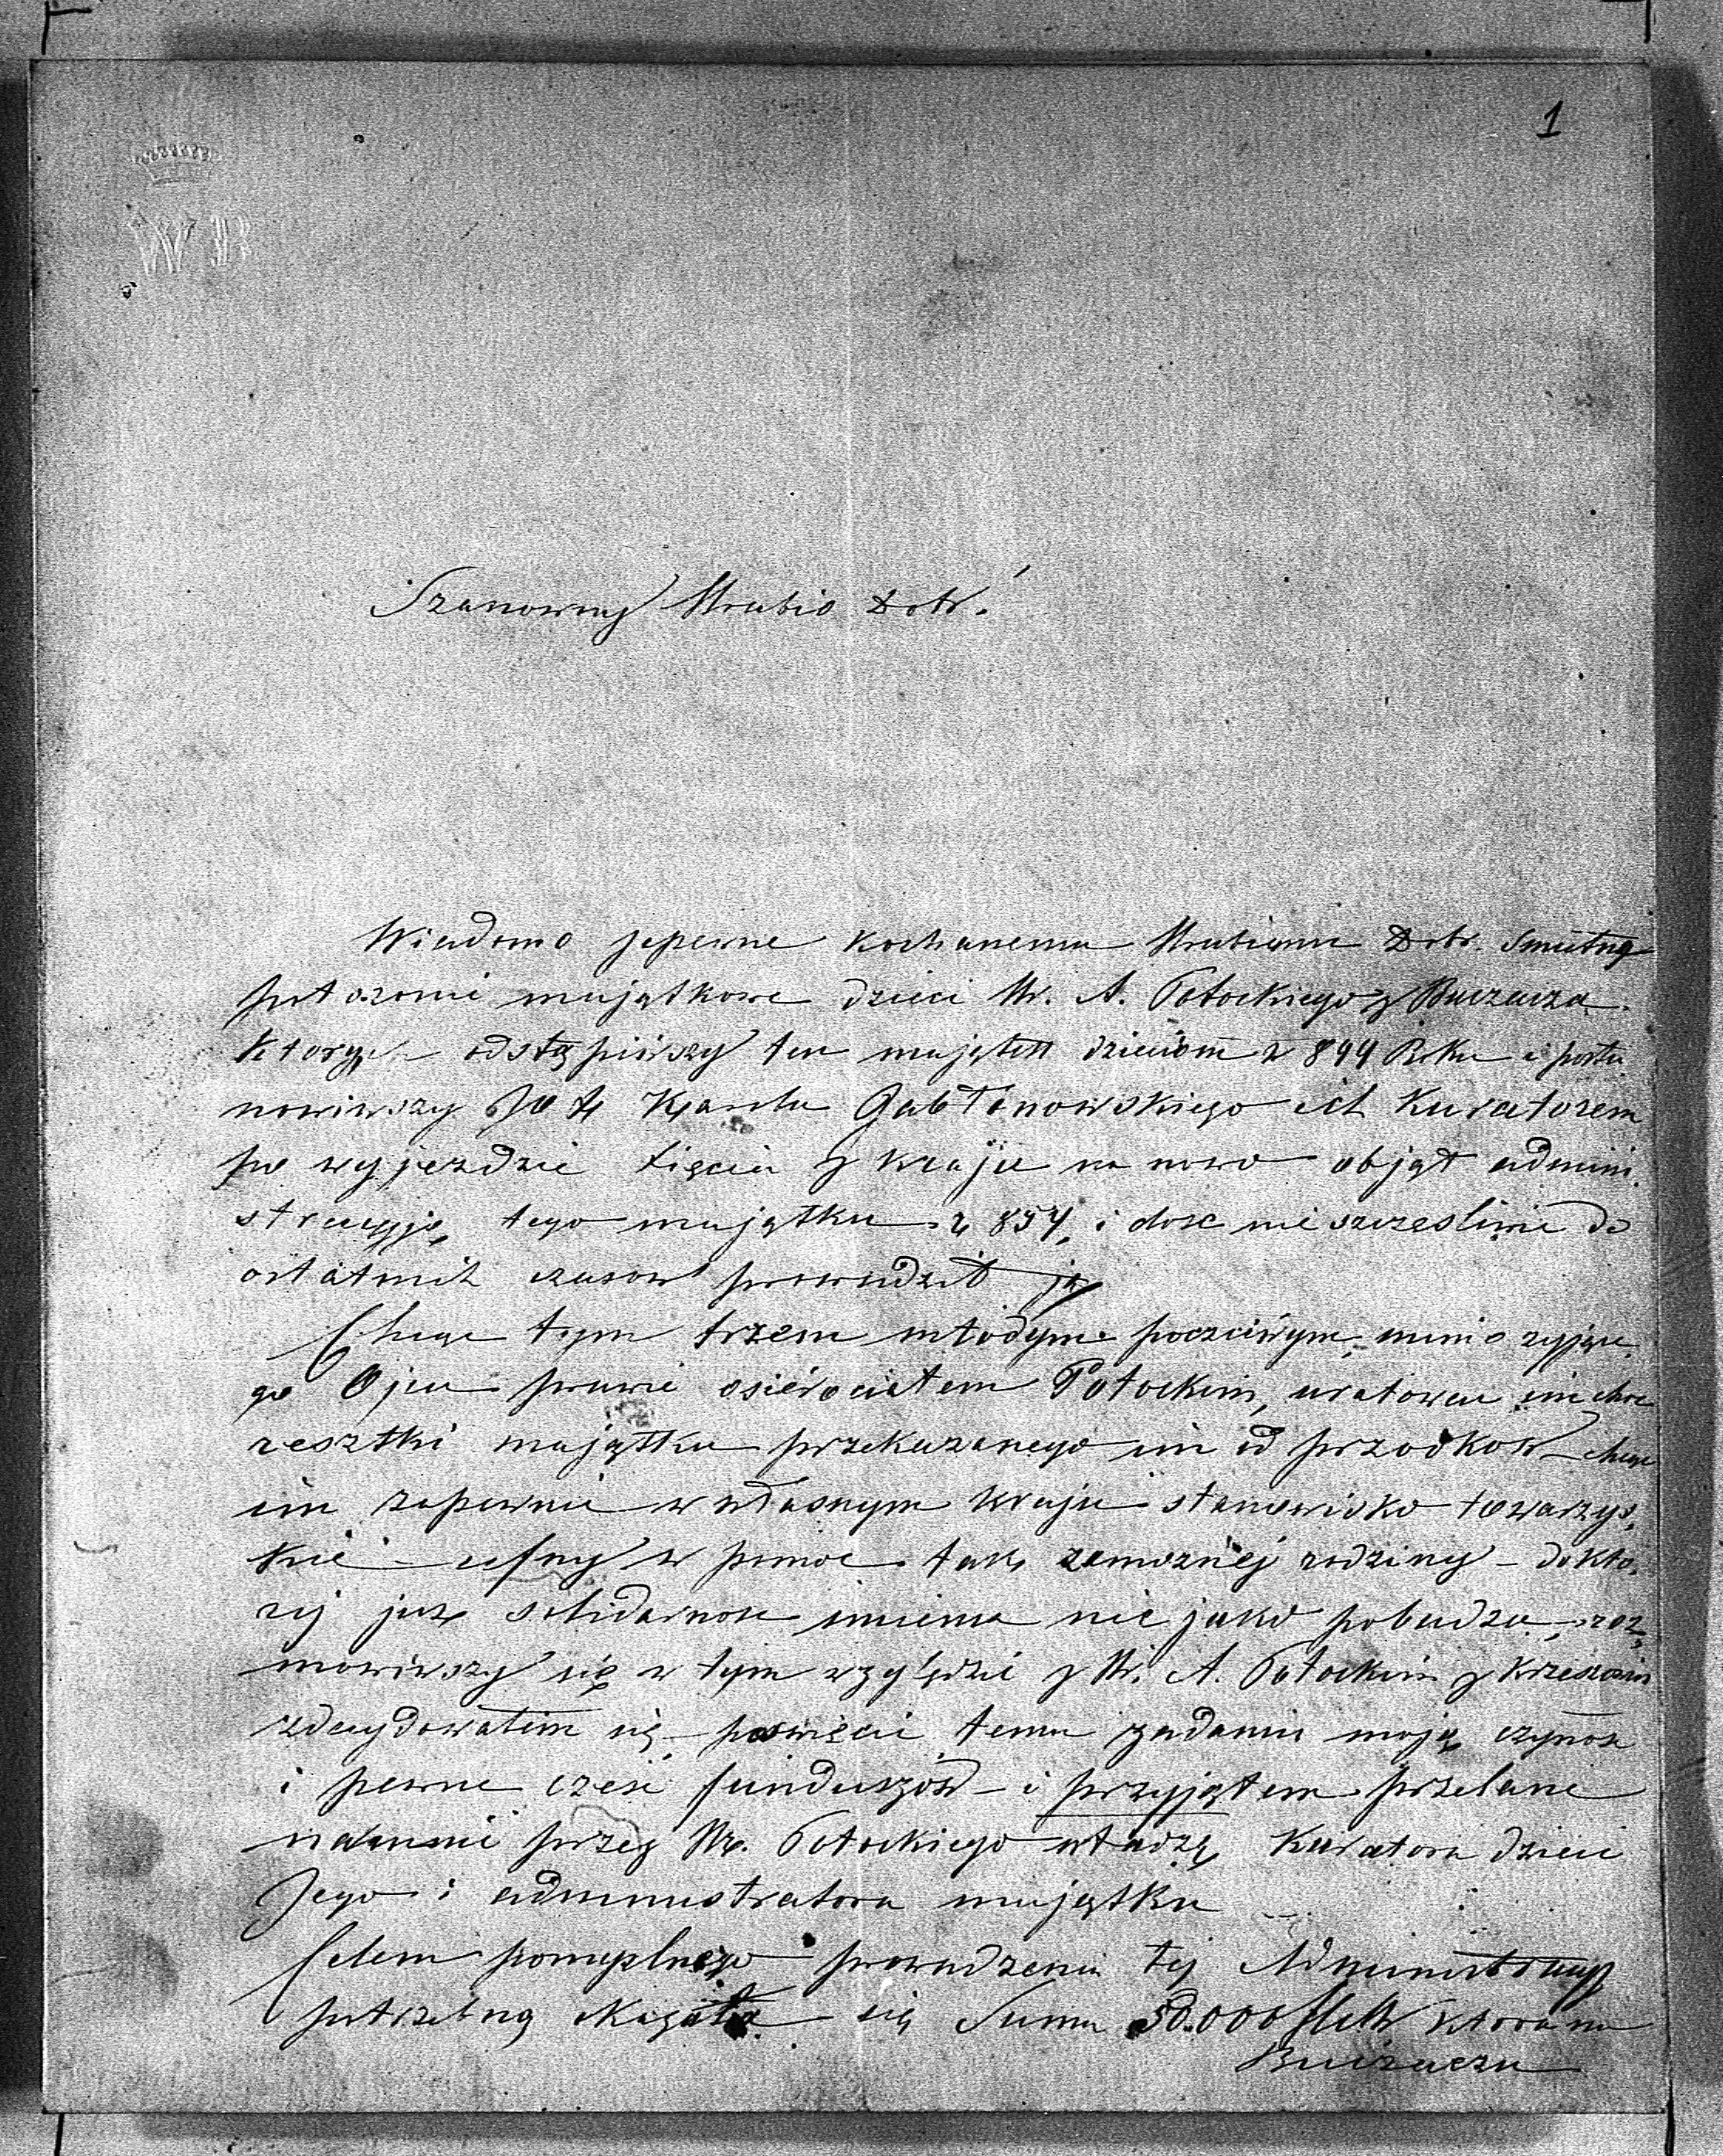 1
W
Szanowny Hrabio Dobr.
Wiadomo zapewne kochanemu Hrabiemu Dobr. smutne
położenie majątkowe dzieci Hr. A. Potockiego z Buczacza.
Których odstąpiwszy ten majątek dzieciom w 844 Roku i posta
nowiwszy Karola Jabłonowskiego ich Kuratorem
po wyjezdzie Xięcia z kraju na nowo objął admini
stracyję tego majątku w 854, i dosc nieszczesliwie do
ostatnich czasow prowadził ją
Chcąc tym trzem młodym poczciwym, mimo zyjące
go Ojca prawie osierociałem Potockim, uratowac im choc
resztki majątku przekazanego im od przodkow chcąc
im zapewnic w własnym kraju stanowisko towarzys
kie – ufny w pomoc tak zamoznej rodziny – do kto
rej juz solidarnosc imienia nie jako pobudza, roz
mowiwszy się w tym względzie z Hr. A. Potockim z Krzeszowic
zdecydowałem się poswięcic temu zadaniu moją czynosc
i pewne częsc funduszów – i przyjątem przelane
na mnie przez Hr. Potockiego władzę Kuratora dzieci
Jego i administratora majątku
Celem pomyslnego prowadzenia tej Administracyi
potrzebną okazała się Suma 50.000 która na
Buczaczu